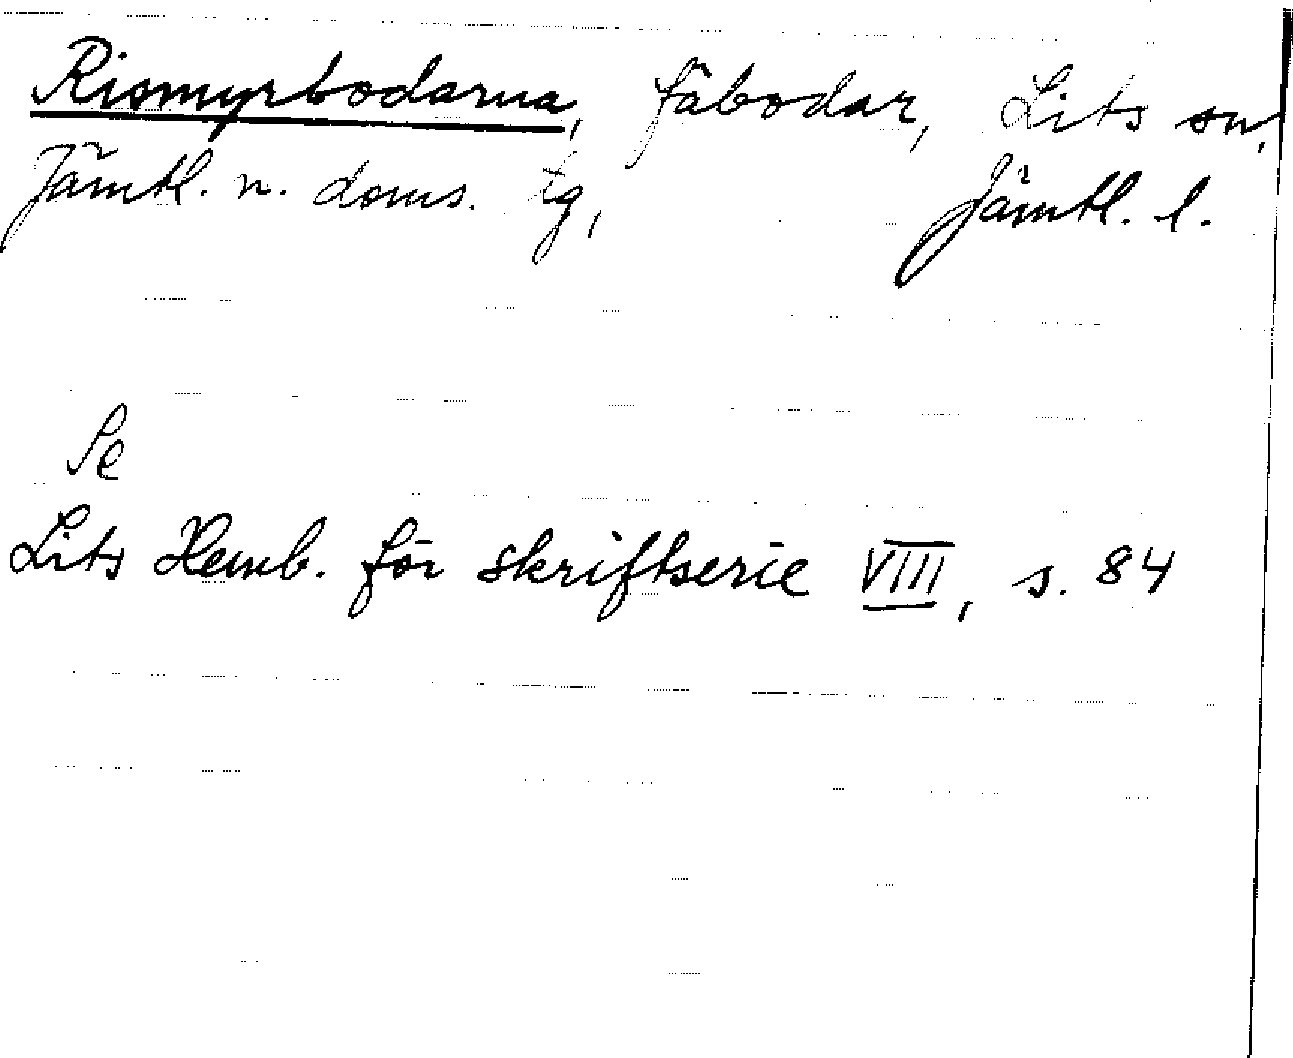 Rismyrbodarna, fäbodar, Lits sn,
Jämtl. n. doms. tg, Jämtl. l.
Se
Lits Hemb. för skriftserie VIII, s. 84